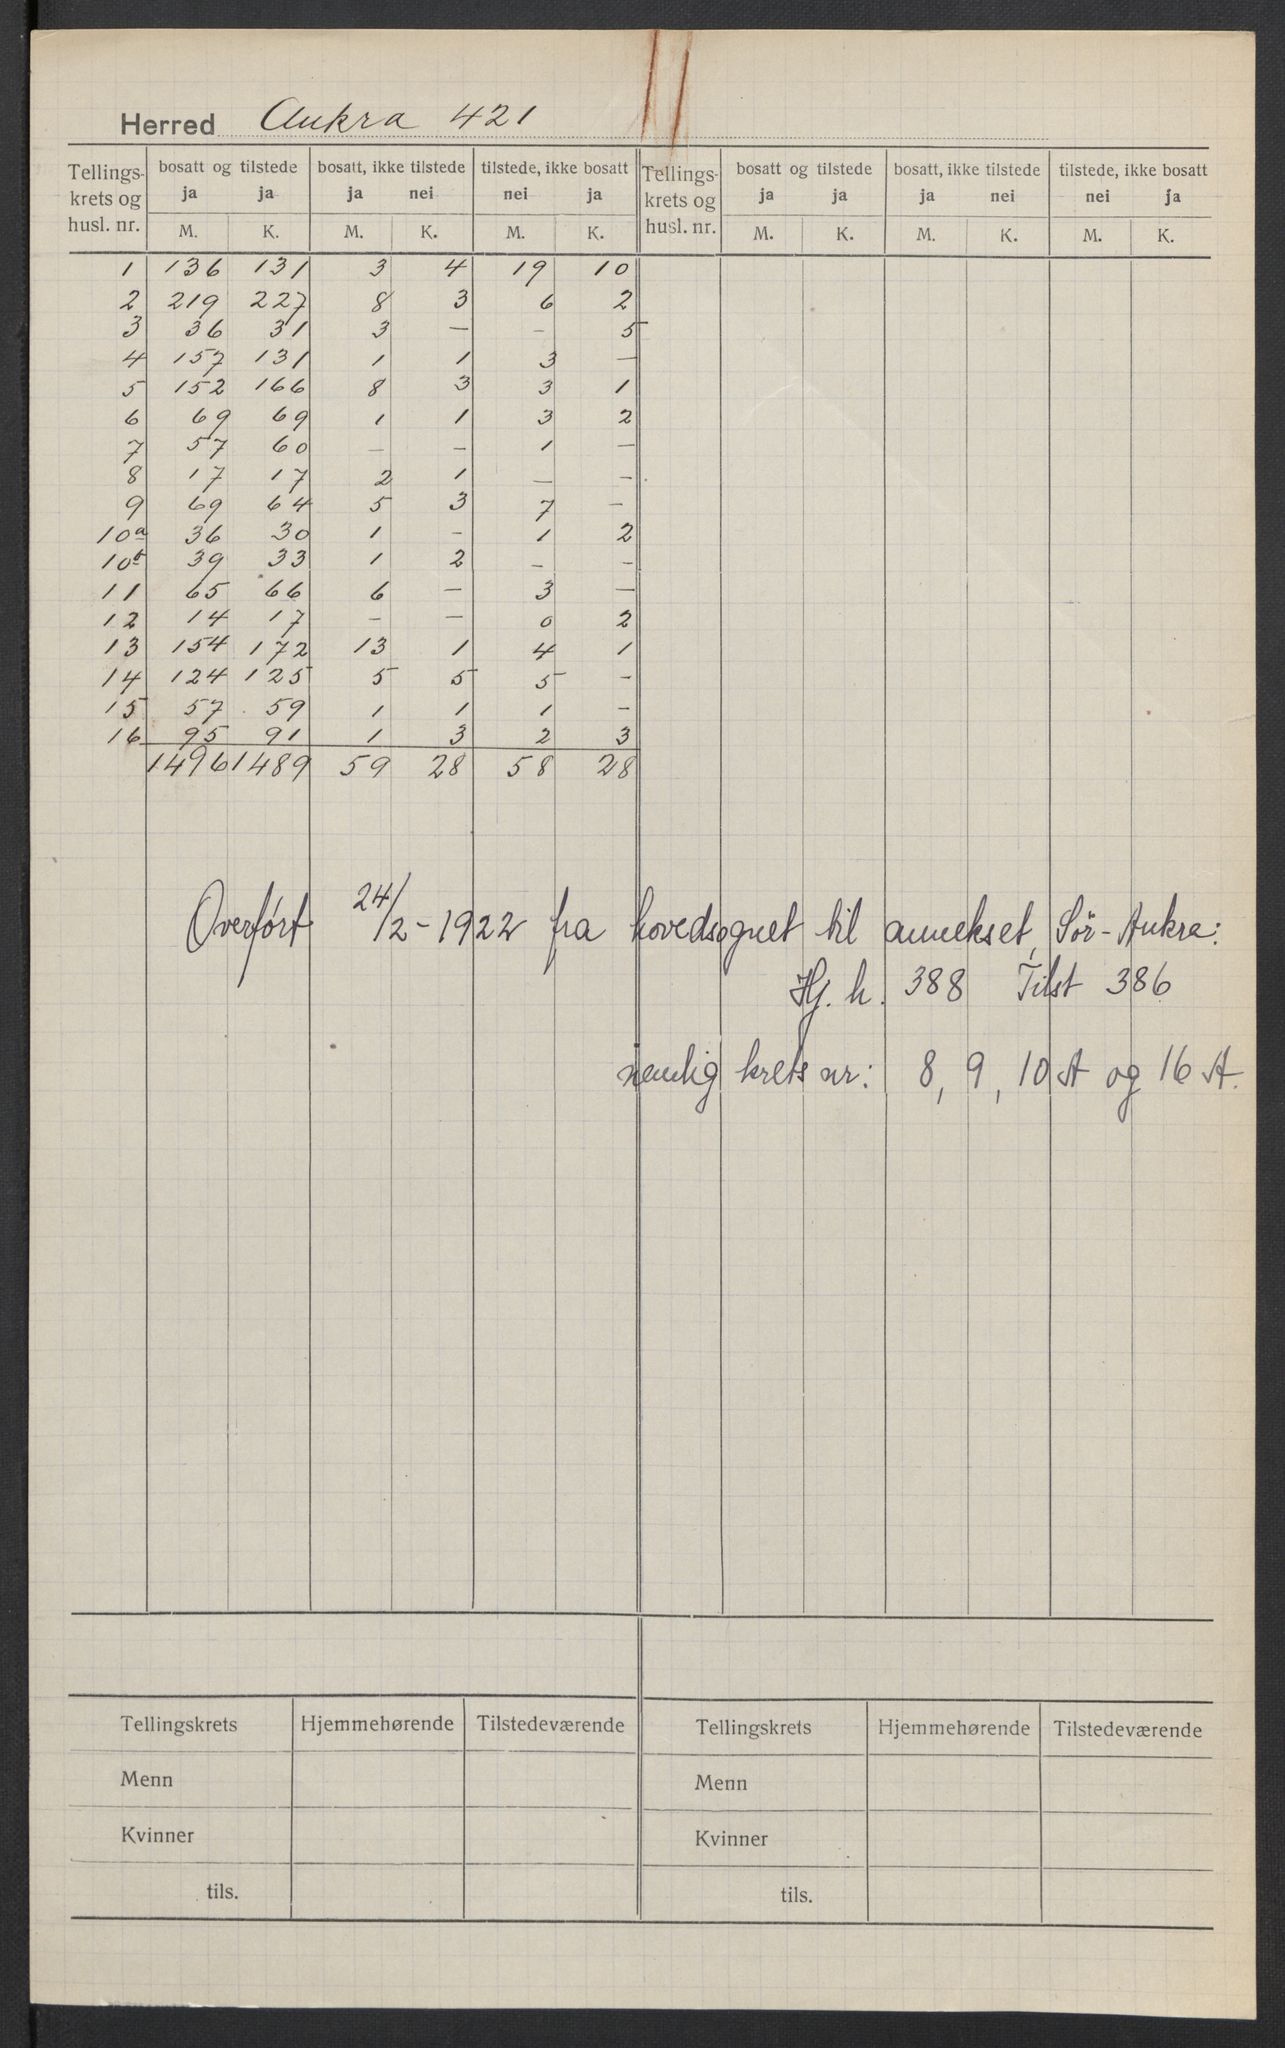 Herred Aukra 421
Tellings- krets og husl. nr. | bosatt og tilstede ja ja | bosatt, ikke tilstede ja nei | tilstede, ikke bosatt nei ja | Tellings- krets og husl. nr. | bosatt og tilstede ja ja | bosatt, ikke tilstede ja nei | tilstede, ikke bosatt nei ja
M. K. M. K. M. K. M. K. M. K. M. K.
1 136 131 3 4 19 10
2 219 227 8 3 6 2
3 36 31 3 — – 5
4 157 131 1 1 3 —
5 152 166 8 3 3 1
6 69 69 1 1 3 2
7 57 60 — – 1 —
8 17 17 2 1 — –
9 69 64 5 3 7 –
10a 36 30 1 – 1 2
10b 39 33 1 2 – –
11 65 66 6 — 3 —
12 14 17 – — 0 2
13 154 172 13 1 4 1
14 124 125 5 5 5 –
15 57 59 1 1 1 –
16 95 91 1 3 2 3
1496 1489 59 28 58 28
Overført 24/2-1922 fra hovedsognet til annekset, Sör-Aukra:
Hj. h. 388 Tilst 386
nemlig krets nr: 8, 9, 10 A og 16 A.
Tellingskrets Hjemmehørende Tilstedeværende Tellingskrets Hjemmehørende Tilstedeværende
Menn Menn
Kvinner Kvinner
tils. tils.